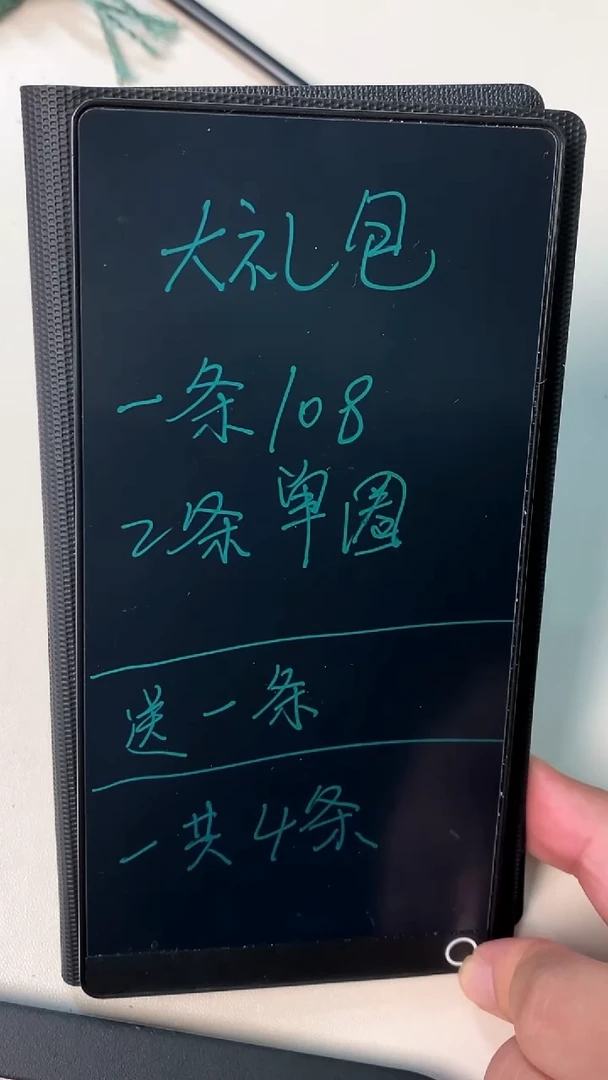 大礼包
一条108
2条单圈
送一条
一共4条